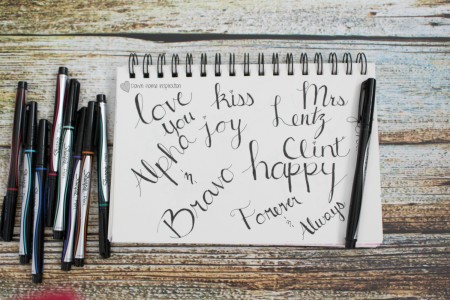 Home Inspection
love you
kiss
joy
Mrs
Lentz
Alpha
Clint
happy
Bravo
Forever
Always